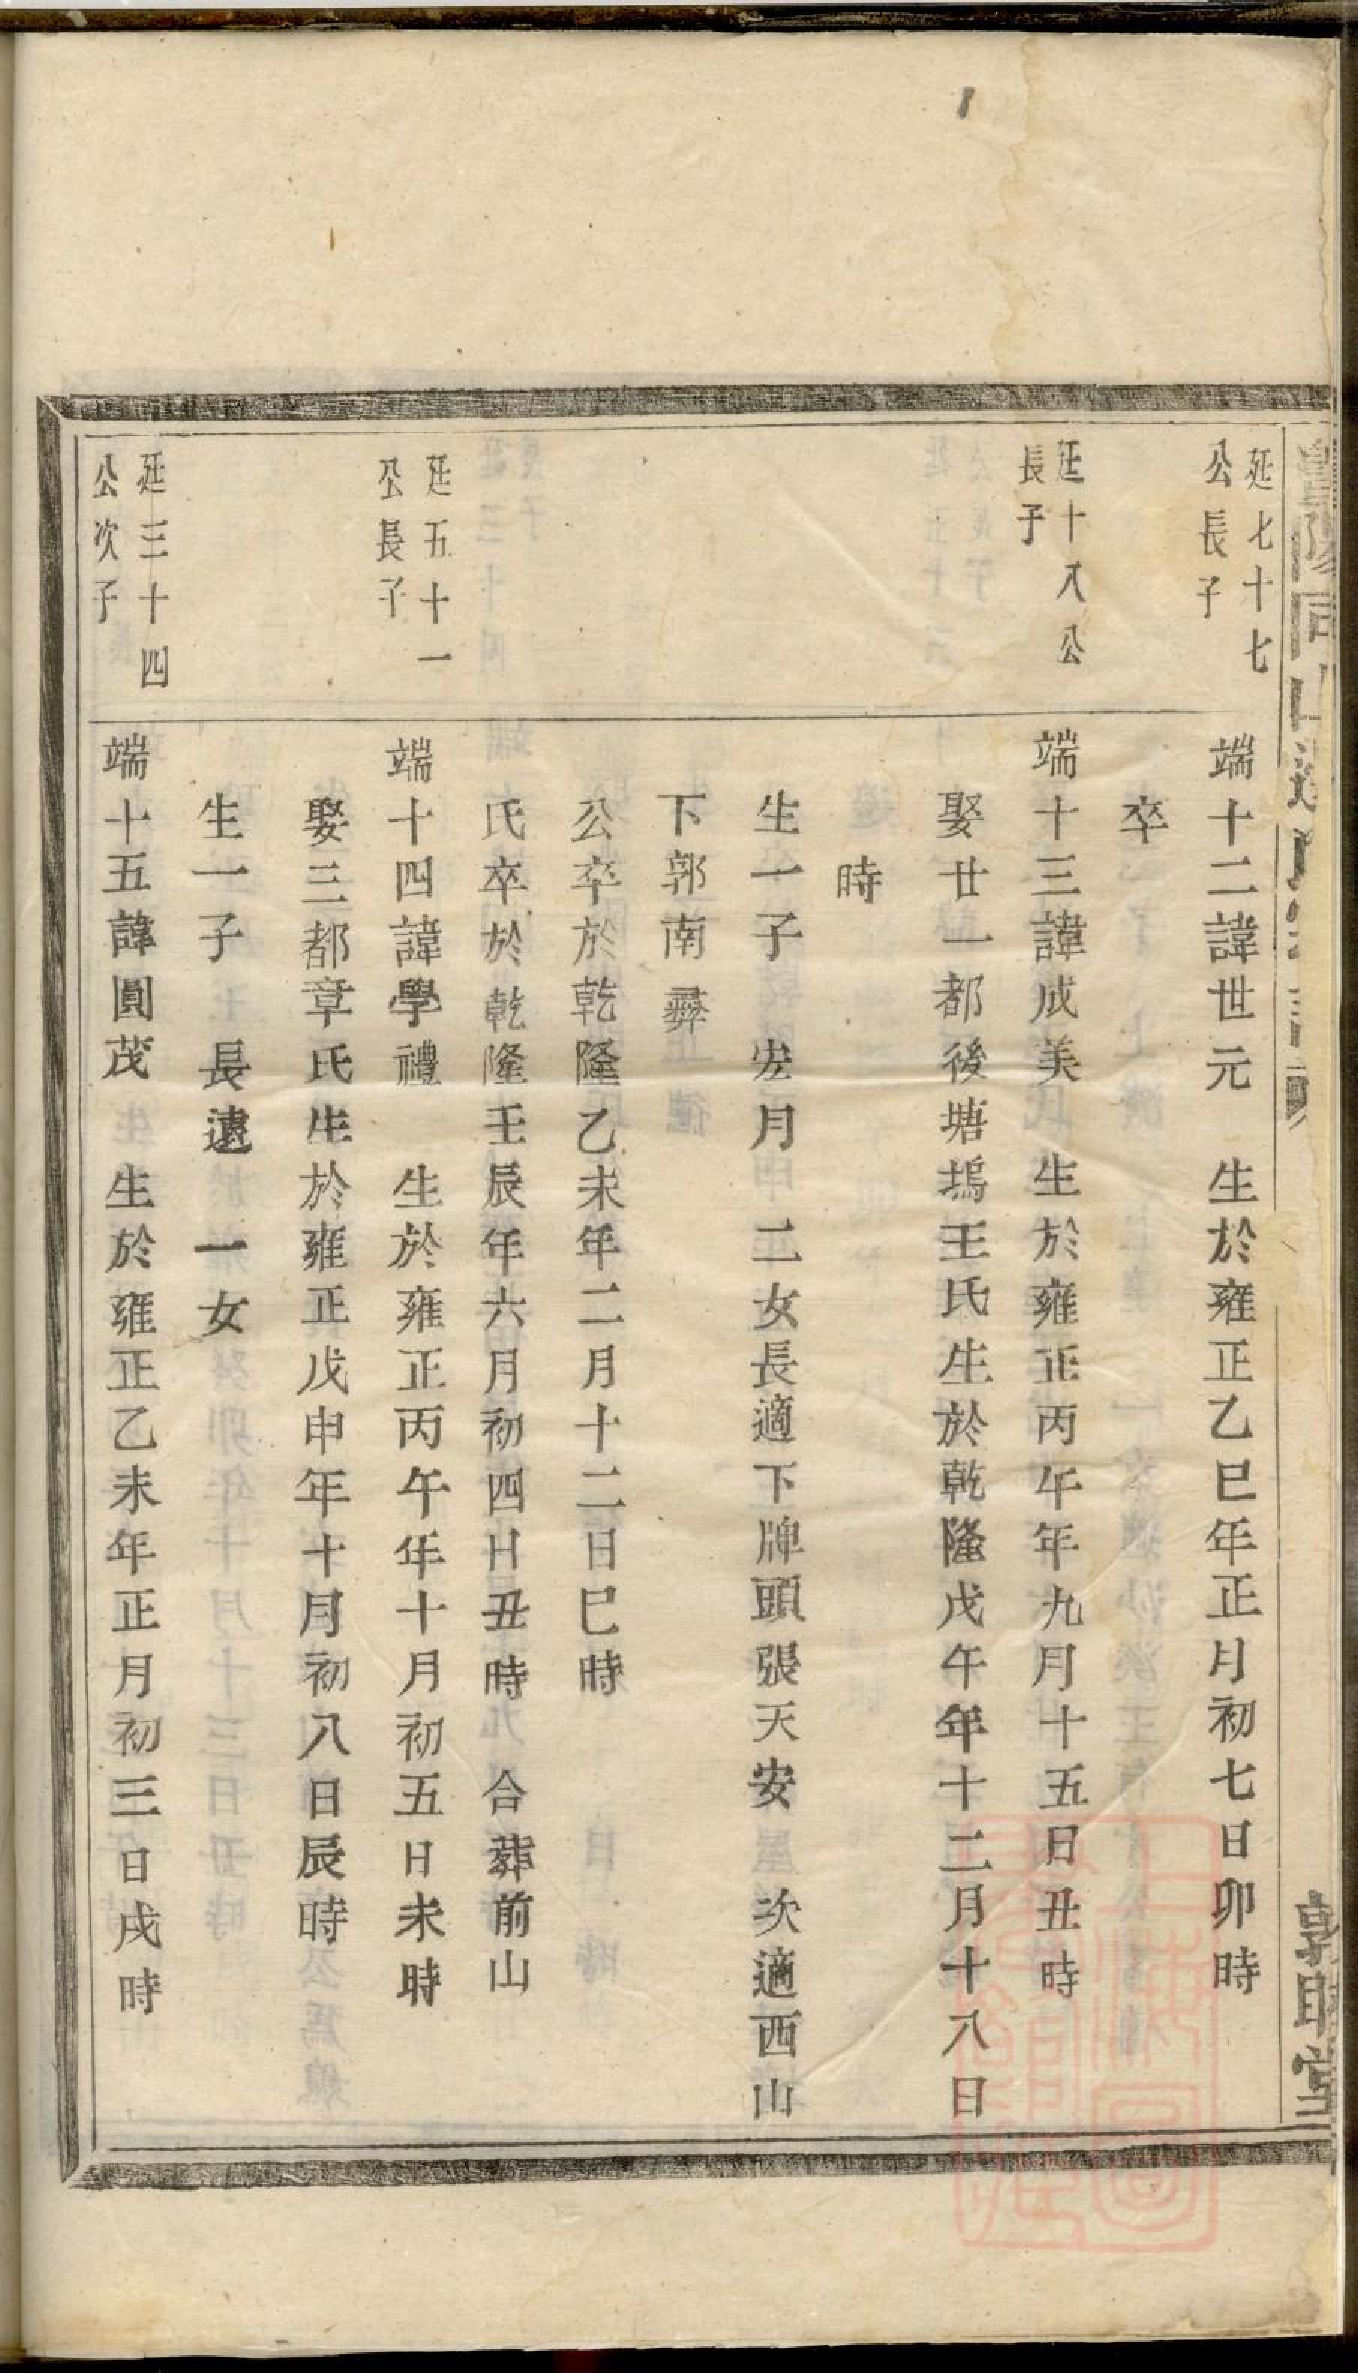 延七十七
公長子
端十二諱世元　生於雍正乙巳年正月初七日卯時
卒
延十八公
長子
端十三諱成美　生於雍正丙午年九月十五日丑時
娶廿一都後塘塢王氏生於乾隆戊午年十二月十八日
時
生一子　宏月　二女長適下牌頭張天安　次適西山
下郭南彛
公卒於乾隆乙未年二月十二日巳時
氏卒於乾隆壬辰年六月初四日丑時　合葬前山
延五十一
公長子
端十四諱學禮　生於雍正丙午年十月初五日未時
娶三都章氏生於雍正戊申年十月初八日辰時
生一子　長遠　一女
延三十四
公次子
端十五諱圓茂　生於雍正乙未年正月初三日戌時
敦睦堂